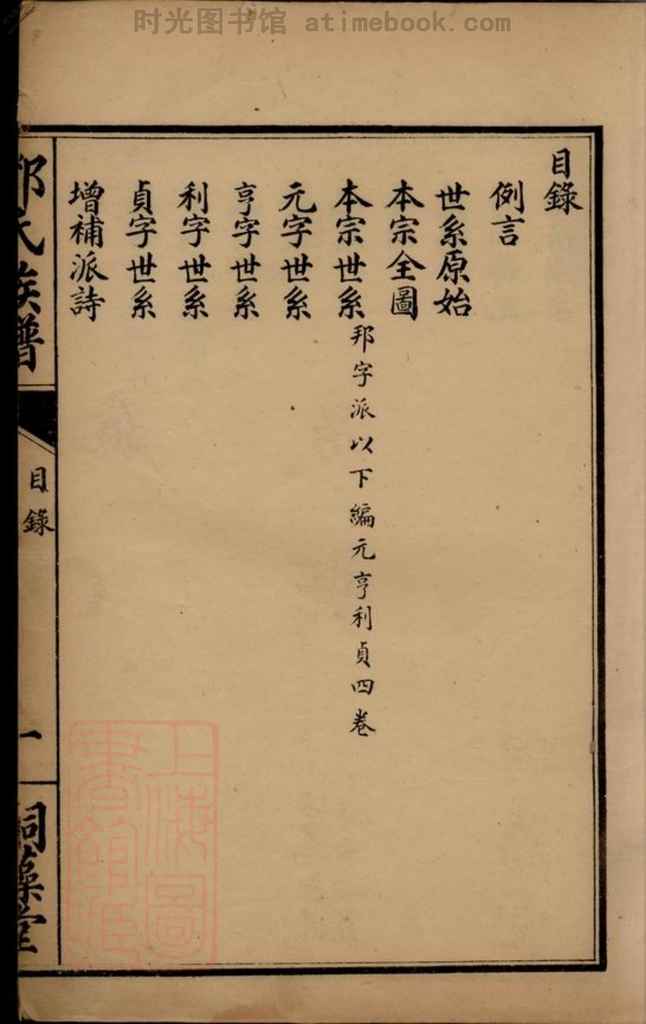 时光图书馆 atimebook.com
目錄
例言
世系原始
本宗全圖
本宗世系 邦字派以下編元亨利貞四卷
元字世系
亨字世系
利字世系
貞字世系
增補派詩
氏族譜
目錄
一
藻堂
上海圖書館藏